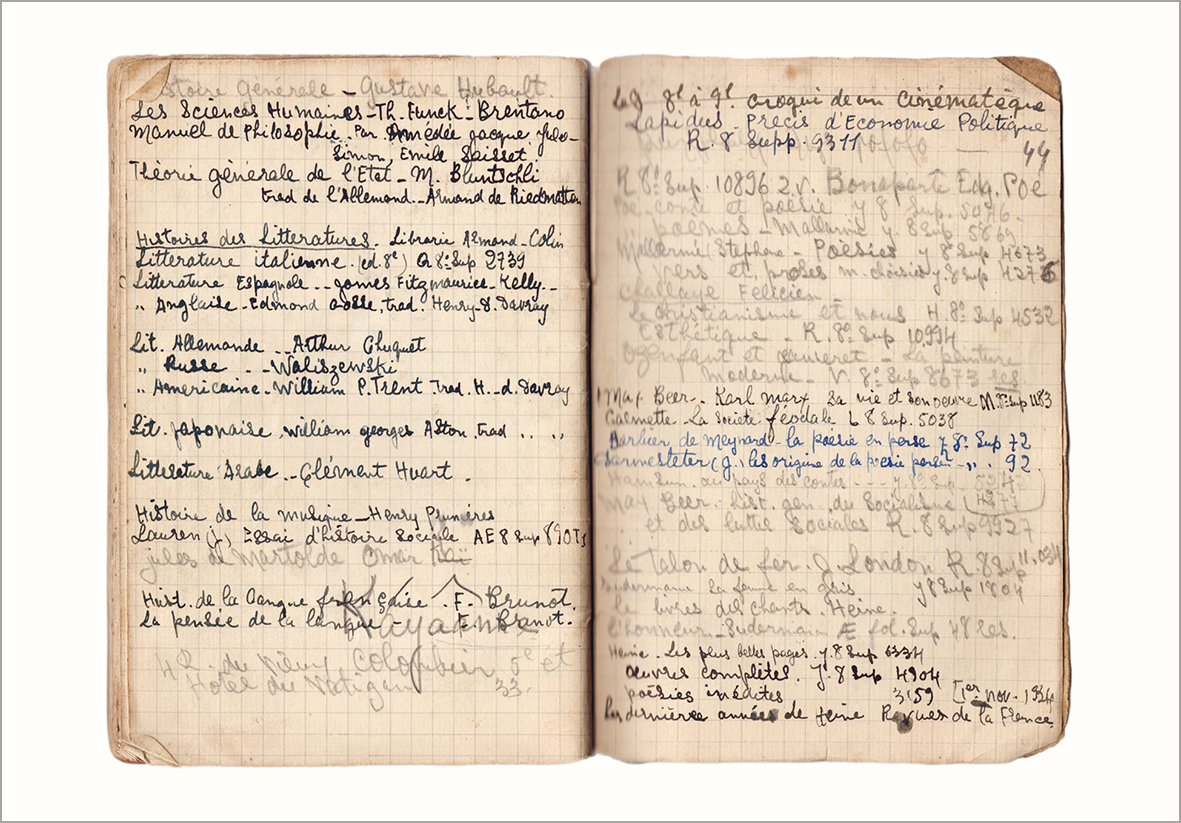 stoire générale - Gustave Hubault.
Les Sciences Humaines - Th. Funck - Brentano
Manuel de Philosophie. Par Amédée jacque
Simon, Emile Saisset
Théorie générale de l'Etat - M. Bluntschli
trad de l'Allemand. - Armand de Riedmatten
Histoires des Litteratures. Librarie Armand-Colin
Litterature italienne (ed. 8e) Q 8° Sup 2739
Litterature Espagnole - James Fitzmaurice-Kelly -
" Anglaise - Edmond Gosse, trad. Henry-D. Davray
Lit. Allemande - Arthur Chuquet
" Russe - Waliszewski
" Americaine - William P. Trent Trad. H. - d. Davray
Lit. japonaise, william georges Aston, trad " "
Litterature Arabe - Clément Huart.
Histoire de la musique - Henry Prunières
Lauren (j.) Essai d'histoire Sociale AE 8 Sup 890
jules de Martolde Omar
Hist. de la langue française F. Brunot.
La pensée de la langue - F. Brunot.
Kayam
4 R. du Vieux Colombier 5e et
Hotel du Vatigan 33.
8e à 9e croqui de un Cinématèque
Lapidus - Précis d'Economie Politique
R. 8 Supp. 9311
44
R 8° Sup. 10896 2 v. Bonaparte Edg. Poe
Poe conte et poésie y 8 Sup. 5076.
poèmes - Mallarmé y 8 Sup. 5869
Mallarmé (Stephane - Poésies y 8° Sup 4673
vers et proses m. choisis y 8 Sup 4276
Challaye Felicien
Le christianisme et nous H. 8° Sup 4532
Esthétique - R. 8° Sup 10994
Ozenfant et Jeaneret - La peinture
Moderne - V. 8° Sup 8673
Max Beer - Karl Marx sa vie et son oeuvre M. 8° Sup 1183
Calmette. La Société féodale L 8 Sup. 5038
Barbier de Meynard - la poésie en perse y 8° Sup 72
Darmesteter (J.) les origine de la poésie persan - " . 92
Hamsun. au pays des contes - y. 8° Sup 5247
4277
Max Beer. Hist. gen. du Socialisme
et des lutte Sociales R. 8 Sup 9927
Le Talon de fer. J. London R 8 Sup 11.034
Sudermann La femme en gris y 8 Sup 1804
Le livres des chants Heine.
L'honneur - Sudermann Æ fol. Sup 48
Heine. Les plus belles pages. y. 8 Sup 6334
œuvres complètes. y. 8 Sup 4904
poésies inédites 3159 [1er nov. 1934
Les dernière années de Heine Revues de la France